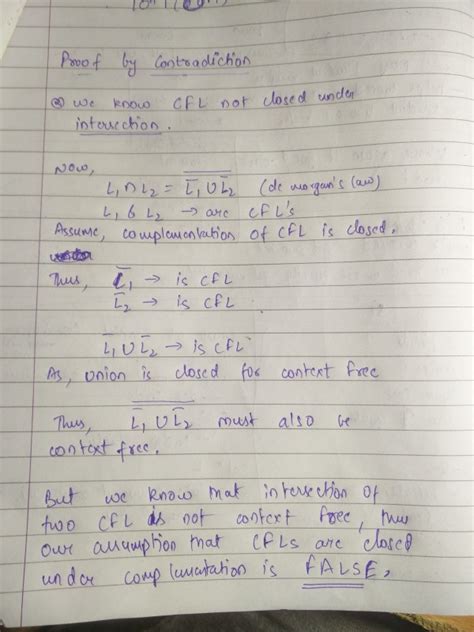 Proof by Contradiction
② We know CFL not closed under
intersection.
Now,
L₁ ∩ L₂ = \overline{\overline{L₁} ∪ \overline{L₂}} (de morgan's law)
L₁ & L₂ → are CFL's
Assume, complementation of CFL is closed.
Thus, \overline{L₁} → is CFL
\overline{L₂} → is CFL
\overline{L₁} ∪ \overline{L₂} → is CFL
As, Union is closed for context free
Thus, \overline{\overline{L₁} ∪ \overline{L₂}} must also be
context free.
But we know that intersection of
two CFL is not context free, thus
our assumption that CFLs are closed
under complementation is FALSE.